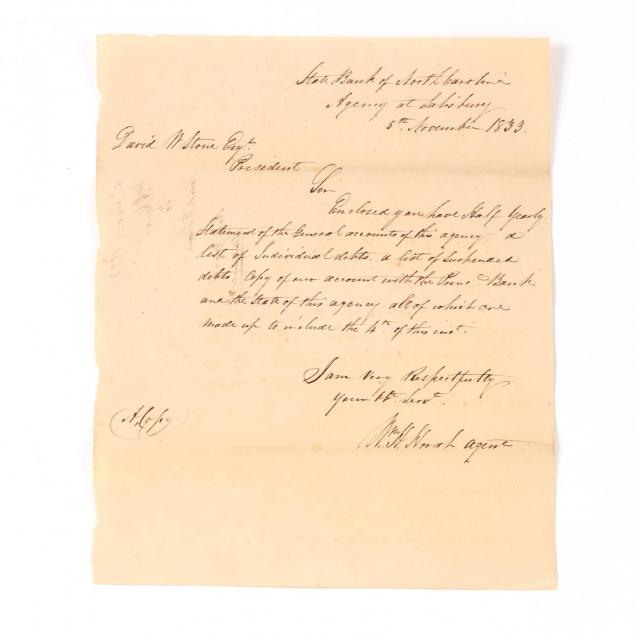 State Bank of North Carolina
Agency at Salisbury
5th November 1833.
David W Stone Esqr.
President
Sir
Enclosed you have Half Yearly
Statement of the General accounts of this agency a
list of Individual debts. a list of Suspended
debts. Copy of our account with the Princ. Bank
and the State of this agency all of which are
made up to include the 4th. of this inst.
I am Very Respectfully
Your Obt. Servt.
Wm. H. Horah agent
A Copy